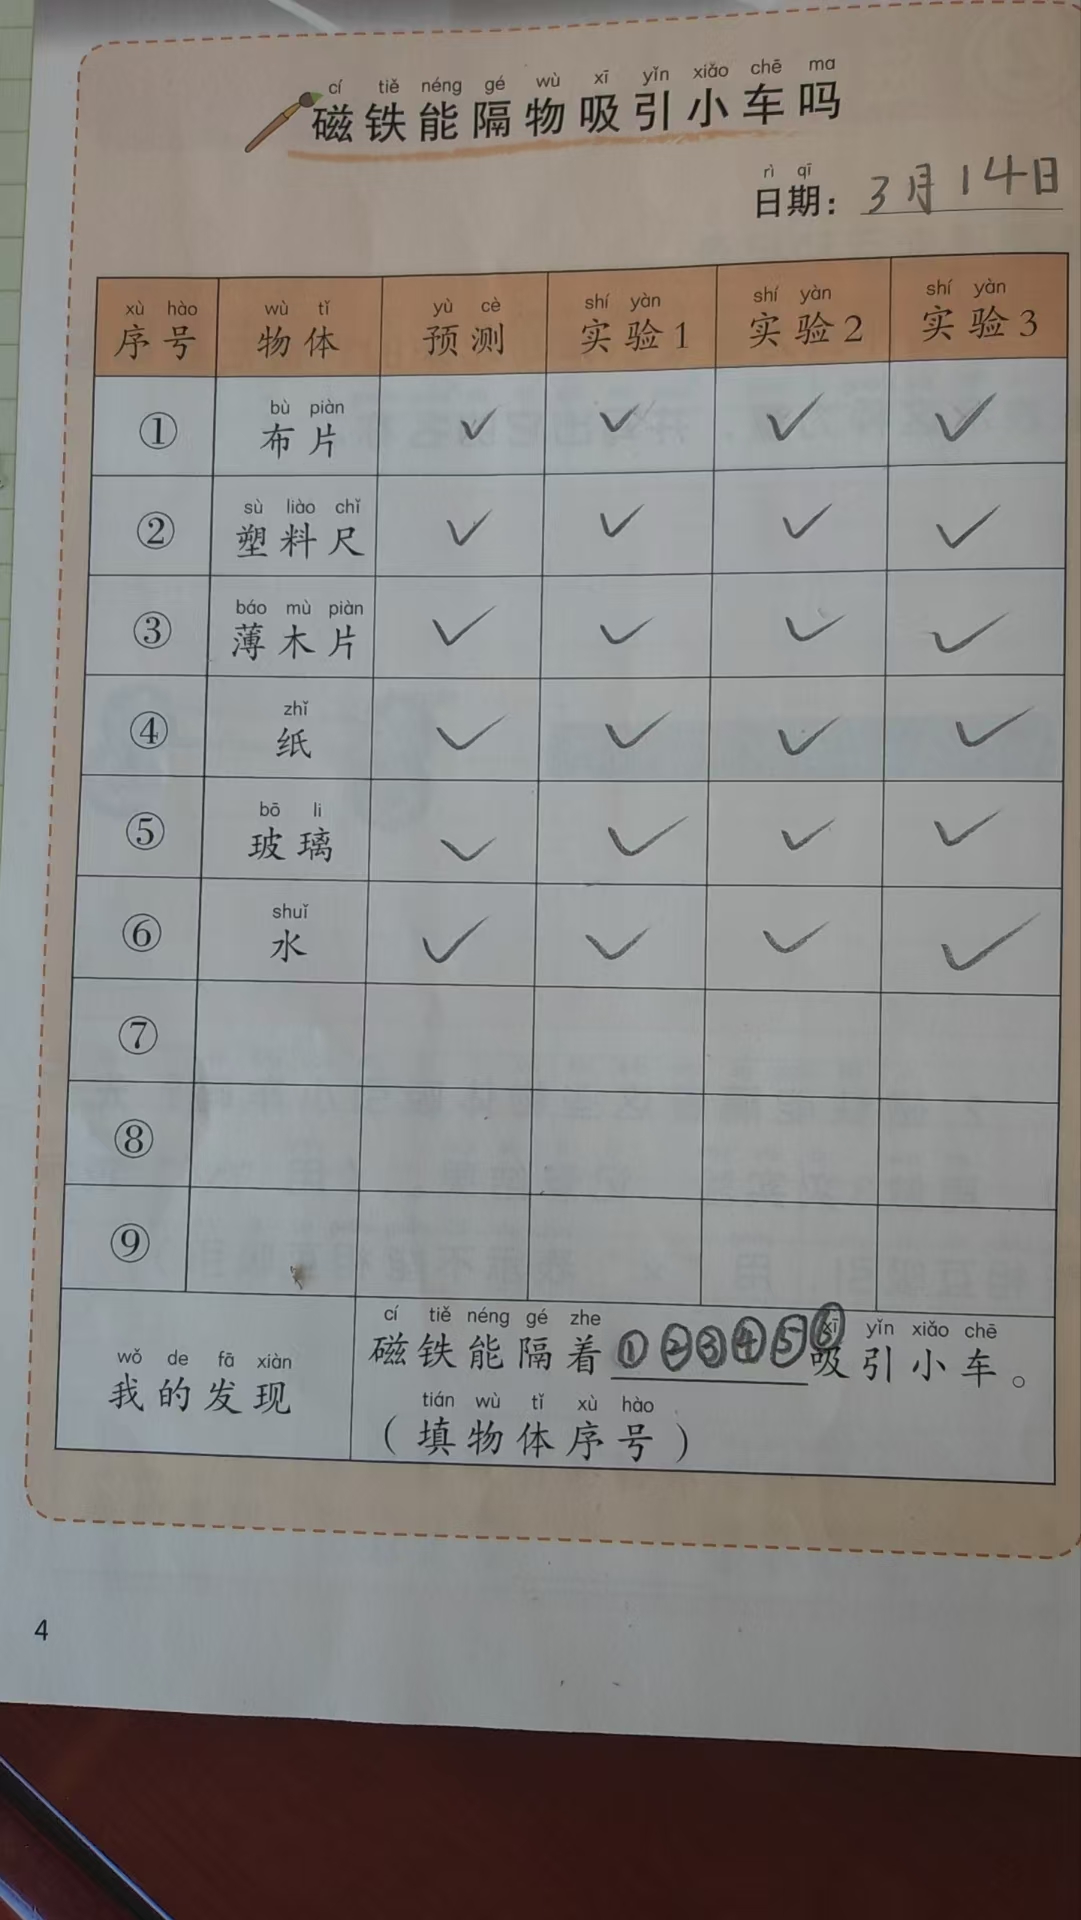 cí tiě néng gé wù xī yǐn xiǎo chē ma
磁铁能隔物吸引小车吗
rì qī
日期：3月14日
xù hào wù tǐ yù cè shí yàn shí yàn shí yàn
序号 物体 预测 实验1 实验2 实验3
bù piàn
① 布片 ✓ ✓ ✓ ✓
sù liào chǐ
② 塑料尺 ✓ ✓ ✓ ✓
báo mù piàn
③ 薄木片 ✓ ✓ ✓ ✓
zhǐ
④ 纸 ✓ ✓ ✓ ✓
bō li
⑤ 玻璃 ✓ ✓ ✓ ✓
shuǐ
⑥ 水 ✓ ✓ ✓ ✓
⑦
⑧
⑨
wǒ de fā xiàn
我的发现
cí tiě néng gé zhe xī yǐn xiǎo chē
磁铁能隔着①②③④⑤⑥吸引小车。
tián wù tǐ xù hào
（填物体序号）
4